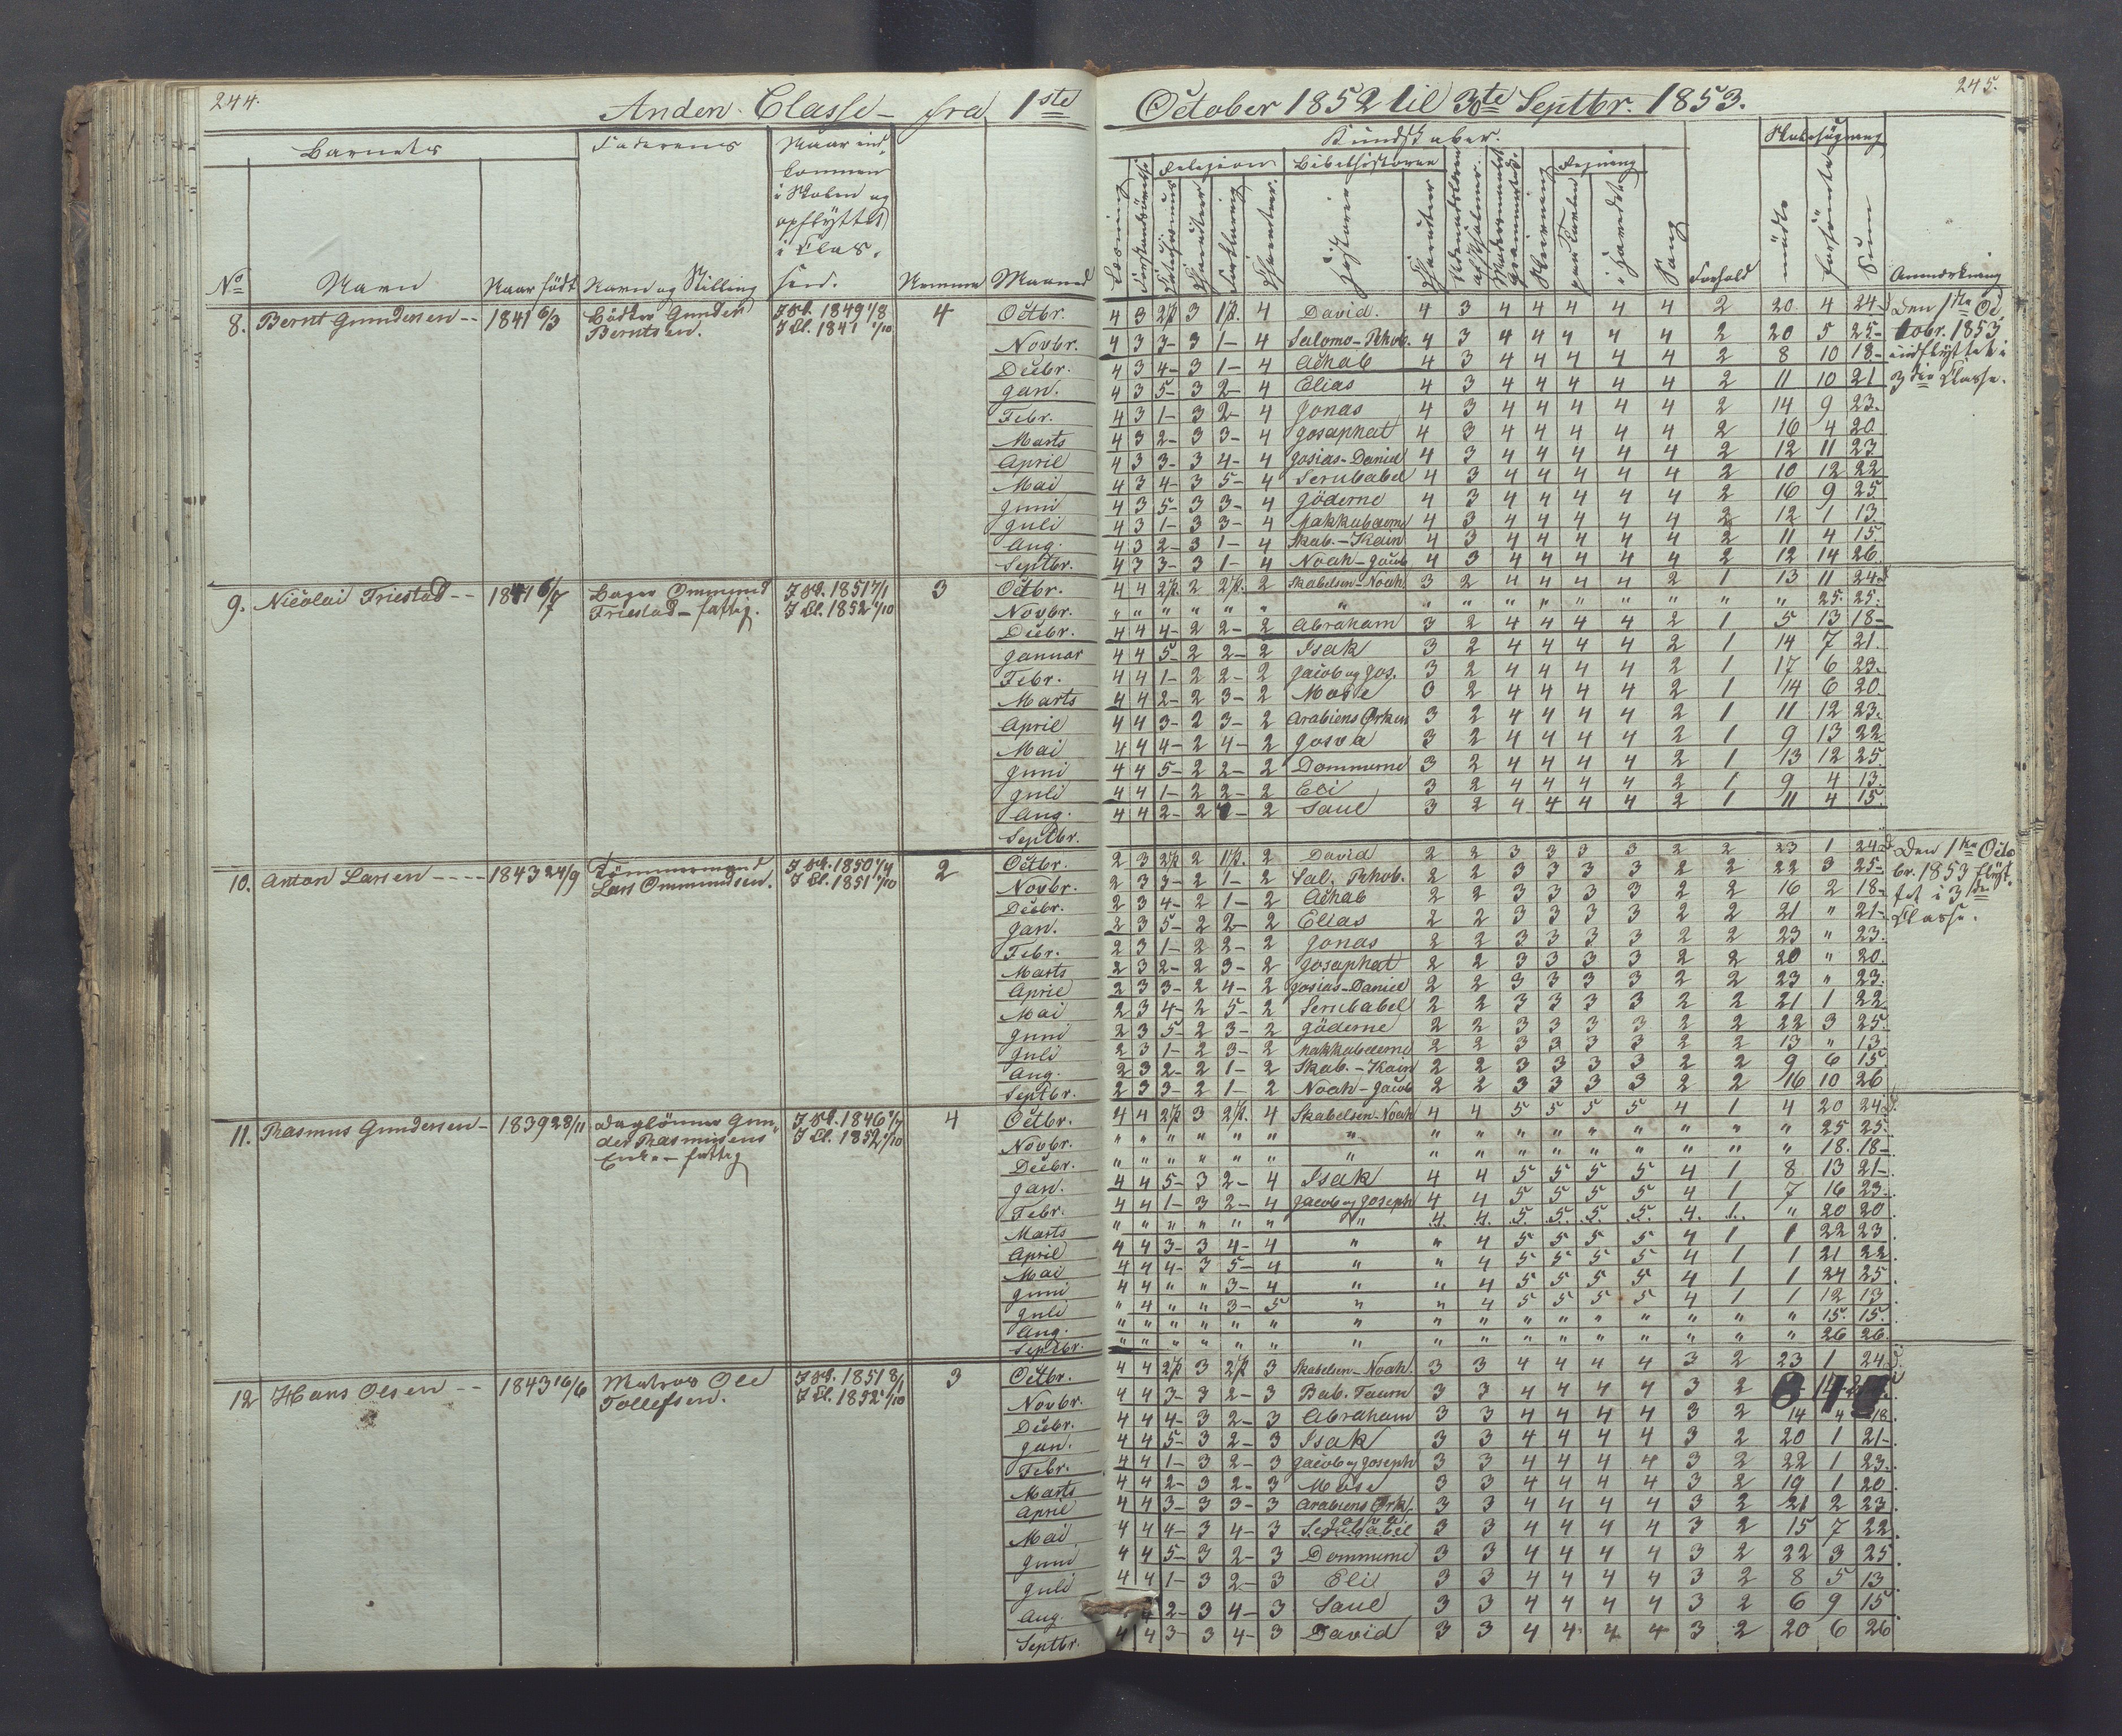 244.
Anden Classe fra 1ste
Barnets Faderens Naar ind-
kommen
i Skolen og
opflyttet
i Clas-
sen.
No Navn Naar født Navn og Stilling Nemme Maaned
8. Bernt Gundersen 1841 6/3 Bødker Gunder Berntsen. I Sk. 1849 1/8 I Cl. 1841 1/10 4
Octbr.
Novbr.
Decbr.
Jan.
Febr.
Marts
April
Mai
Juni
Juli
Aug.
Septbr.
9. Nicolai Friestad 1841 6/7 Ommund Friestad - fattig. I Sk. 1851 7/1 I Cl. 1852 1/10 3
Octbr.
Novbr.
Decbr.
Januar
Febr.
Marts
April
Mai
Juni
Juli
Aug.
Septbr.
10. Anton Larsen 1843 24/9 Tømmermand Lars Ommundsen. I Sk. 1850 1/4 I Cl. 1851 1/10 2
Octbr.
Novbr.
Decbr.
Jan.
Febr.
Marts
April
Mai
Juni
Juli
Aug.
Septbr.
11. Rasmus Gundersen 1839 28/11 Daglønner Gunder Rasmussens Enke - fattig I Sk. 1846 1/7 I Cl. 1852 1/10 4
Octbr.
Novbr.
Decbr.
Jan.
Febr.
Marts
April
Mai
Juni
Juli
Aug.
Septbr.
12 Hans Olsen 1843 16/6 Matros Ole Tollefsen. I Sk. 1851 8/1 I Cl. 1852 1/10 3
Octbr.
Novbr.
Decbr.
Jan.
Febr.
Marts
April
Mai
Juni
Juli
Aug.
Septbr.
245.
October 1852 til 30te Septbr. 1853.
Kundskaber. Skolesøgning
Religion Bibelhistorie Regning
Læsning Historier Skrivning Sang Forhold mødte forsømte Sum Anmærkning
4 3 2/p 3 1/p. 4 David. 4 3 4 4 4 4 4 2 20 4 24
4 3 3- 3 1- 4 Salomo-Rhob. 4 3 4 4 4 4 4 2 20 5 25
4 3 4- 3 1- 4 Achab 4 3 4 4 4 4 4 2 8 10 18
4 3 5- 3 2- 4 Elias 4 3 4 4 4 4 4 2 11 10 21
4 3 1- 3 2- 4 Jonas 4 3 4 4 4 4 4 2 14 9 23.
4 3 2- 3 3- 4 Josaphat 4 3 4 4 4 4 4 2 16 4 20
4 3 3- 3 4- 4 Josias-Daniel 4 3 4 4 4 4 4 2 12 11 23
4 3 4- 3 5- 4 Serubabel 4 3 4 4 4 4 4 2 10 12 22
4 3 5- 3 3- 4 Jöderne 4 3 4 4 4 4 4 2 16 9 25
4 3 1- 3 3- 4 Makkabæerne 4 3 4 4 4 4 4 2 12 1 13
4 3 2- 3 1- 4 Skab.-Kain 4 3 4 4 4 4 4 2 11 4 15
4 3 3- 3 1- 4 Noah-Jacob 4 3 4 4 4 4 4 2 12 14 26
Den 1ste Oc-
tobr. 1853
indflyttet i
3die Classe.
4 4 2/p. 2 2/p. 2 Skabelsen-Noah 3 2 4 4 4 4 2 1 13 11 24
" " " " " " " " " " " " " " " " 25. 25.
4 4 4- 2 2- 2 Abraham 3 2 4 4 4 4 2 1 5 13 18
4 4 5- 2 2- 2 Isak 3 2 4 4 4 4 2 1 14 7 21
4 4 1- 2 2- 2 Jacob og Jos. 3 2 4 4 4 4 2 1 17 6 23
4 4 2- 2 3- 2 Mose 3 2 4 4 4 4 2 1 14 6 20
4 4 3- 2 3- 2 Arabiens Ørken 3 2 4 4 4 4 2 1 11 12 23
4 4 4- 2 4- 2 Josva 3 2 4 4 4 4 2 1 9 13 22
4 4 5- 2 2- 2 Dommerne 3 2 4 4 4 4 2 1 13 12 25
4 4 1- 2 2- 2 Eli 3 2 4 4 4 4 2 1 9 4 13
4 4 2- 2 4- 2 Saul 3 2 4 4 4 4 2 1 11 4 15
2 3 2/p 2 1/p. 2 David 2 2 3 3 3 3 2 2 23 1 24
2 3 3- 2 1- 2 Sal. Rhob. 2 2 3 3 3 3 2 2 22 3 25
2 3 4- 2 1- 2 Achab 2 2 3 3 3 3 2 2 16 2 18
2 3 5- 2 2- 2 Elias 2 2 3 3 3 3 2 2 21 " 21
2 3 1- 2 2- 2 Jonas 2 2 3 3 3 3 2 2 23 " 23
2 3 2- 2 3- 2 Josaphat 2 2 3 3 3 3 2 2 20 " 20
2 3 3- 2 4- 2 Josias-Daniel 2 2 3 3 3 3 2 2 23 " 23
2 3 4- 2 5- 2 Serubabel 2 2 3 3 3 3 2 2 21 1 22
2 3 5- 2 3- 2 Jöderne 2 2 3 3 3 3 2 2 22 3 25
2 3 1- 2 3- 2 Makkabæerne 2 2 3 3 3 3 2 2 13 " 13
2 3 2- 2 1- 2 Skab.-Kain 2 2 3 3 3 3 2 2 9 6 15
2 3 3- 2 1- 2 Noah-Jacob 2 2 3 3 3 3 2 2 16 10 26
Den 1ste Octo-
br. 1853 flyt-
tet i 3die
Classe.
4 4 2/p 3 2/p. 4 Skabelsen-Noah 4 4 5 5 5 5 4 1 4 20 24
" " " " " " " " " " " " " " " " 25 25
" " " " " " " " " " " " " " " " 18. 18
4 4 5- 3 2- 4 Isak 4 4 5 5 5 5 4 1 8 13 21
4 4 1- 3 2- 4 Jacob og Joseph 4 4 5 5 5 5 4 1 7 16 23
" " " " " " " 4. 4. 5. 5. 5. 5. 4. 1. " 20 20
4 4 3- 3 4- 4 " " 4 5 5 5 5 4 1 1 22 23
4 4 4- 3 5- 4 " " 4 5 5 5 5 4 1 1 21 22
4 4 " " 3- 4 " " 4 5 5 5 5 4 1 1 24 25
" 4 " " 3- 5 " " 4 5 5 5 5 4 1 1 12 13
" " " " " " " " " " " " " " " " 15. 15.
" " " " " " " " " " " " " " " " 26 26.
4 4 2/p 3 2/p 3 Skabelsen-Noah. 3 3 4 4 4 4 3 2 23 1 24
4 4 3- 3 2- 3 Bab. Taarn 3 3 4 4 4 4 3 2
4 4 4- 3 2- 3 Abraham 3 3 4 4 4 4 3 2 14 4 18
4 4 5- 3 2- 3 Isak 3 3 4 4 4 4 3 2 20 1 21
4 4 1- 3 2- 3 Jacob og Joseph 3 3 4 4 4 4 3 2 22 1 23
4 4 2- 3 2- 3 Mose 3 3 4 4 4 4 3 2 19 1 20
4 4 3- 3 3- 3 Arabiens Ørk. 3 3 4 4 4 4 3 2 21 2 23
4 4 4- 3 4- 3 Josva. Serubabel 3 3 4 4 4 4 3 2 15 7 22
4 4 5- 3 2- 3 Dommerne 3 3 4 4 4 4 3 2 22 3 25
4 4 1- 3 2- 3 Eli 3 3 4 4 4 4 3 2 8 5 13
4 2- 3 4- 3 Saul 3 3 4 4 4 4 3 2 6 9 15
4 4 3- 3 4- 3 David 3 3 4 4 4 4 3 2 20 6 26